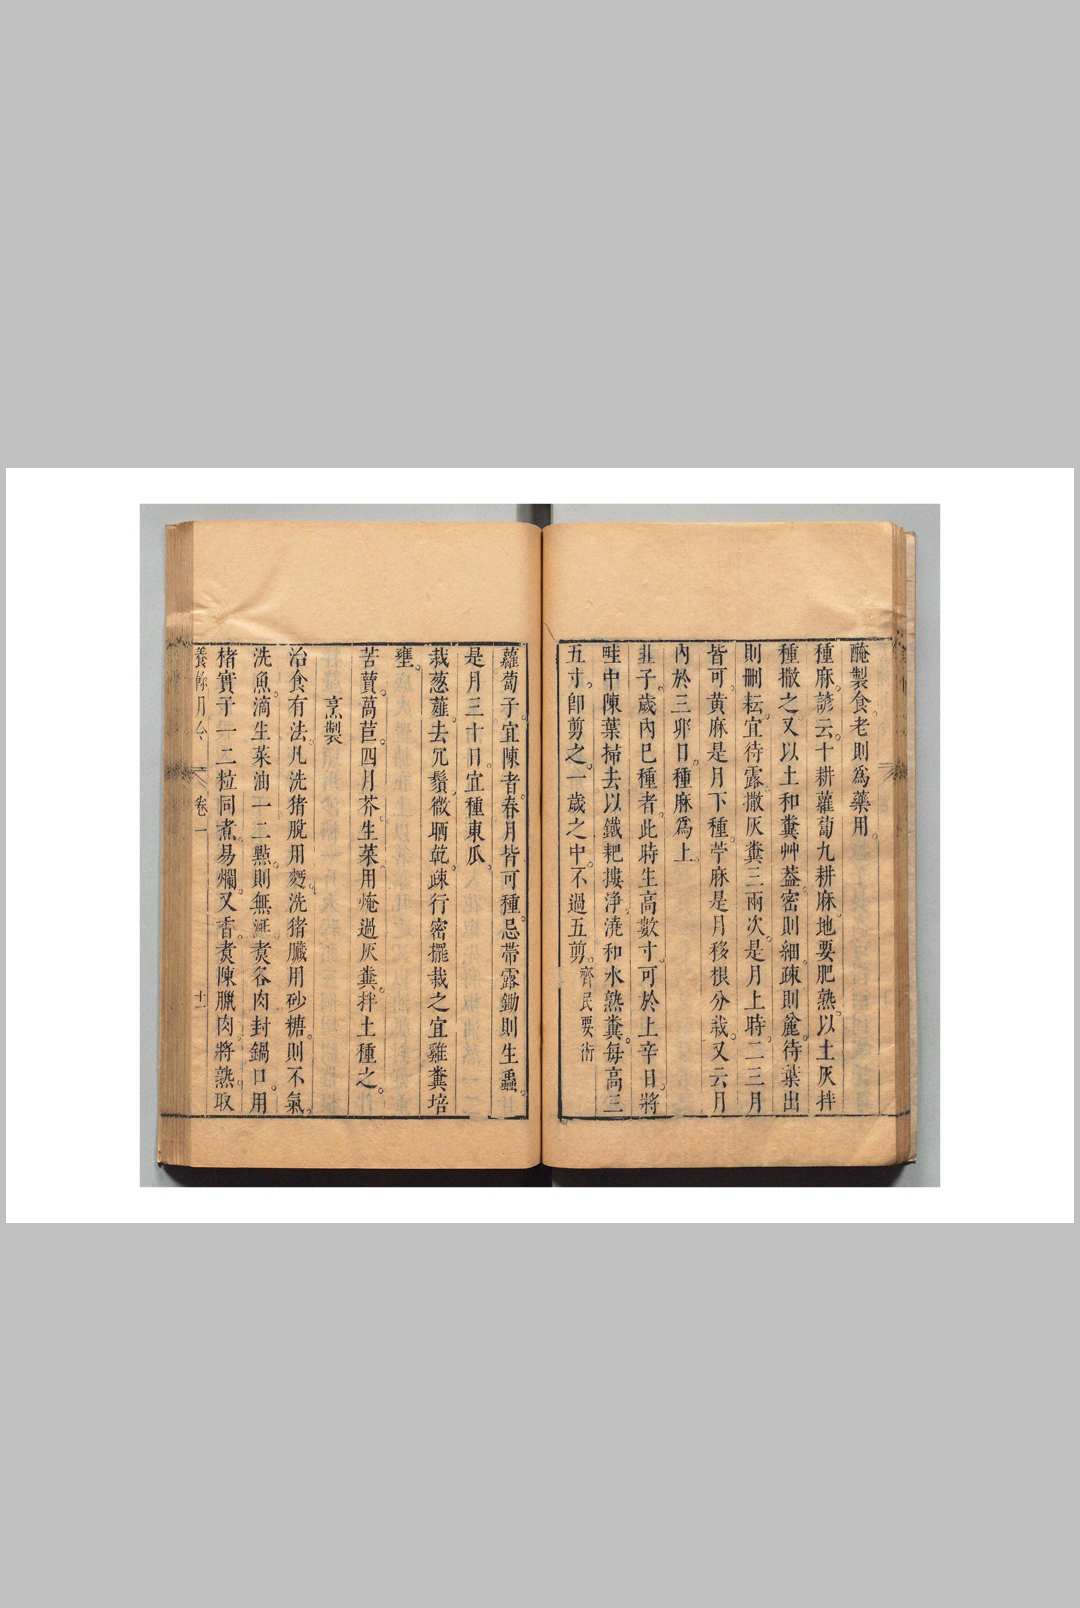 醃製食老則爲藥用。
種麻。諺云。十耕蘿蔔九耕麻。地要肥熟。以土灰拌
種撒之。又以土和糞艸葢。密則細。疎則麄。待葉出
則刪耘。宜待露撒灰糞三兩次。是月上時。二三月
皆可。黄麻是月下種。苧麻是月移根分栽。又云。月
內於三卯日。種麻爲上。
韭子。歲內已種者。此時生高數寸。可於上辛日。將
畦中陳葉掃去。以鐵耙摟淨。澆和水熟糞。每高三
五寸。卽剪之。一歲之中。不過五剪。齊民要術
蘿蔔子。宜陳者。春月皆可種。忌帶露鋤則生蟲。
是月三十日。宜種東瓜。
栽葱薤。去冗鬚。微晒乾。疎行密擺栽之。宜雞糞培
壅。
苦蕒萵苣。四月芥生菜。用煁過灰糞。拌土種之。
烹製
治食有法。凡洗猪脫用麪。洗猪臟用砂糖。則不氣。
洗魚。滴生菜油一二點。則無涎。煑各肉。封鍋口。用
楮實子一二粒同煮。易爛。又香。煑陳臘肉。將熟取
養餘月令 卷一 十一